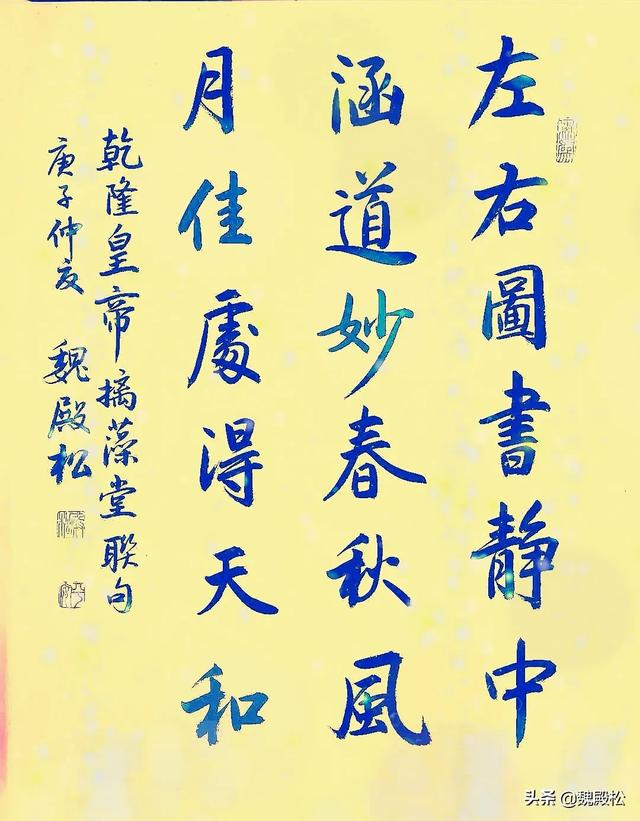 左右圖書静中
涵道妙春秋風
月佳處得天和
乾隆皇帝摛藻堂聯句
庚子仲夏 魏殿松
头条 @魏殿松